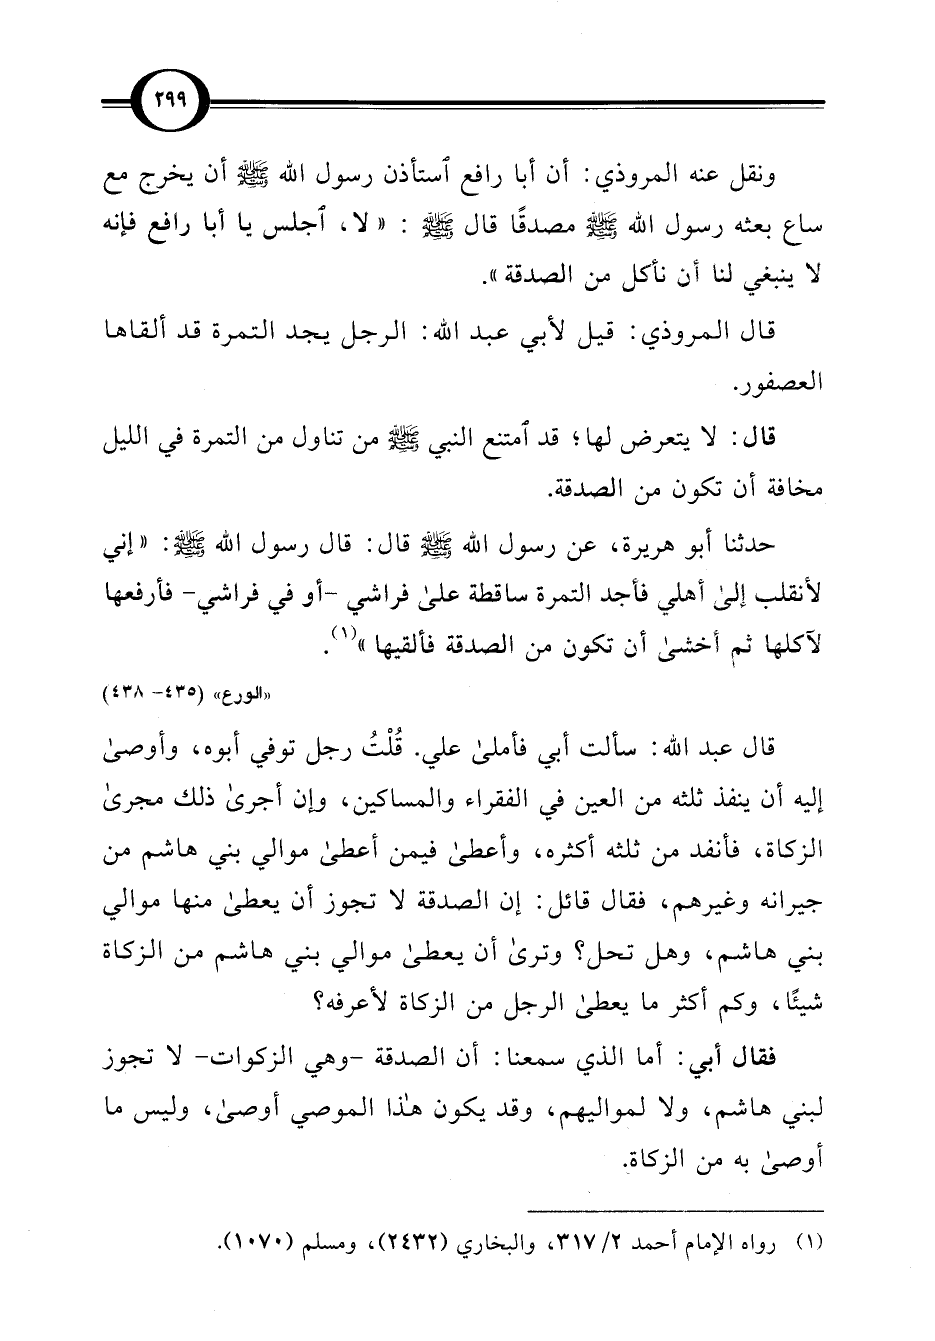 ٢٩٩
ونقل عنه المروذي: أن أبا رافع ٱستأذن رسول الله ﷺ أن يخرج مع
ساع بعثه رسول الله ﷺ مصدقًا قال ﷺ : « لا، ٱجلس يا أبا رافع فإنه
لا ينبغي لنا أن نأكل من الصدقة ».
قال المروذي: قيل لأبي عبد الله: الرجل يجد التمرة قد ألقاها
العصفور.
قال: لا يتعرض لها؛ قد ٱمتنع النبي ﷺ من تناول من التمرة في الليل
مخافة أن تكون من الصدقة.
حدثنا أبو هريرة، عن رسول الله ﷺ قال: قال رسول الله ﷺ: « إني
لأنقلب إلىٰ أهلي فأجد التمرة ساقطة علىٰ فراشي -أو في فراشي- فأرفعها
لآكلها ثم أخشىٰ أن تكون من الصدقة فألقيها »(١).
«الورع» (٤٣٥- ٤٣٨)
قال عبد الله: سألت أبي فأملىٰ علي. قُلْتُ رجل توفي أبوه، وأوصىٰ
إليه أن ينفذ ثلثه من العين في الفقراء والمساكين، وإن أجرىٰ ذلك مجرىٰ
الزكاة، فأنفد من ثلثه أكثره، وأعطىٰ فيمن أعطىٰ موالي بني هاشم من
جيرانه وغيرهم، فقال قائل: إن الصدقة لا تجوز أن يعطىٰ منها موالي
بني هاشم، وهل تحل؟ وترىٰ أن يعطىٰ موالي بني هاشم من الزكاة
شيئًا، وكم أكثر ما يعطىٰ الرجل من الزكاة لأعرفه؟
فقال أبي: أما الذي سمعنا: أن الصدقة -وهي الزكوات- لا تجوز
لبني هاشم، ولا لمواليهم، وقد يكون هٰذا الموصي أوصىٰ، وليس ما
أوصىٰ به من الزكاة.
(١) رواه الإمام أحمد ٢/ ٣١٧، والبخاري (٢٤٣٢)، ومسلم (١٠٧٠).